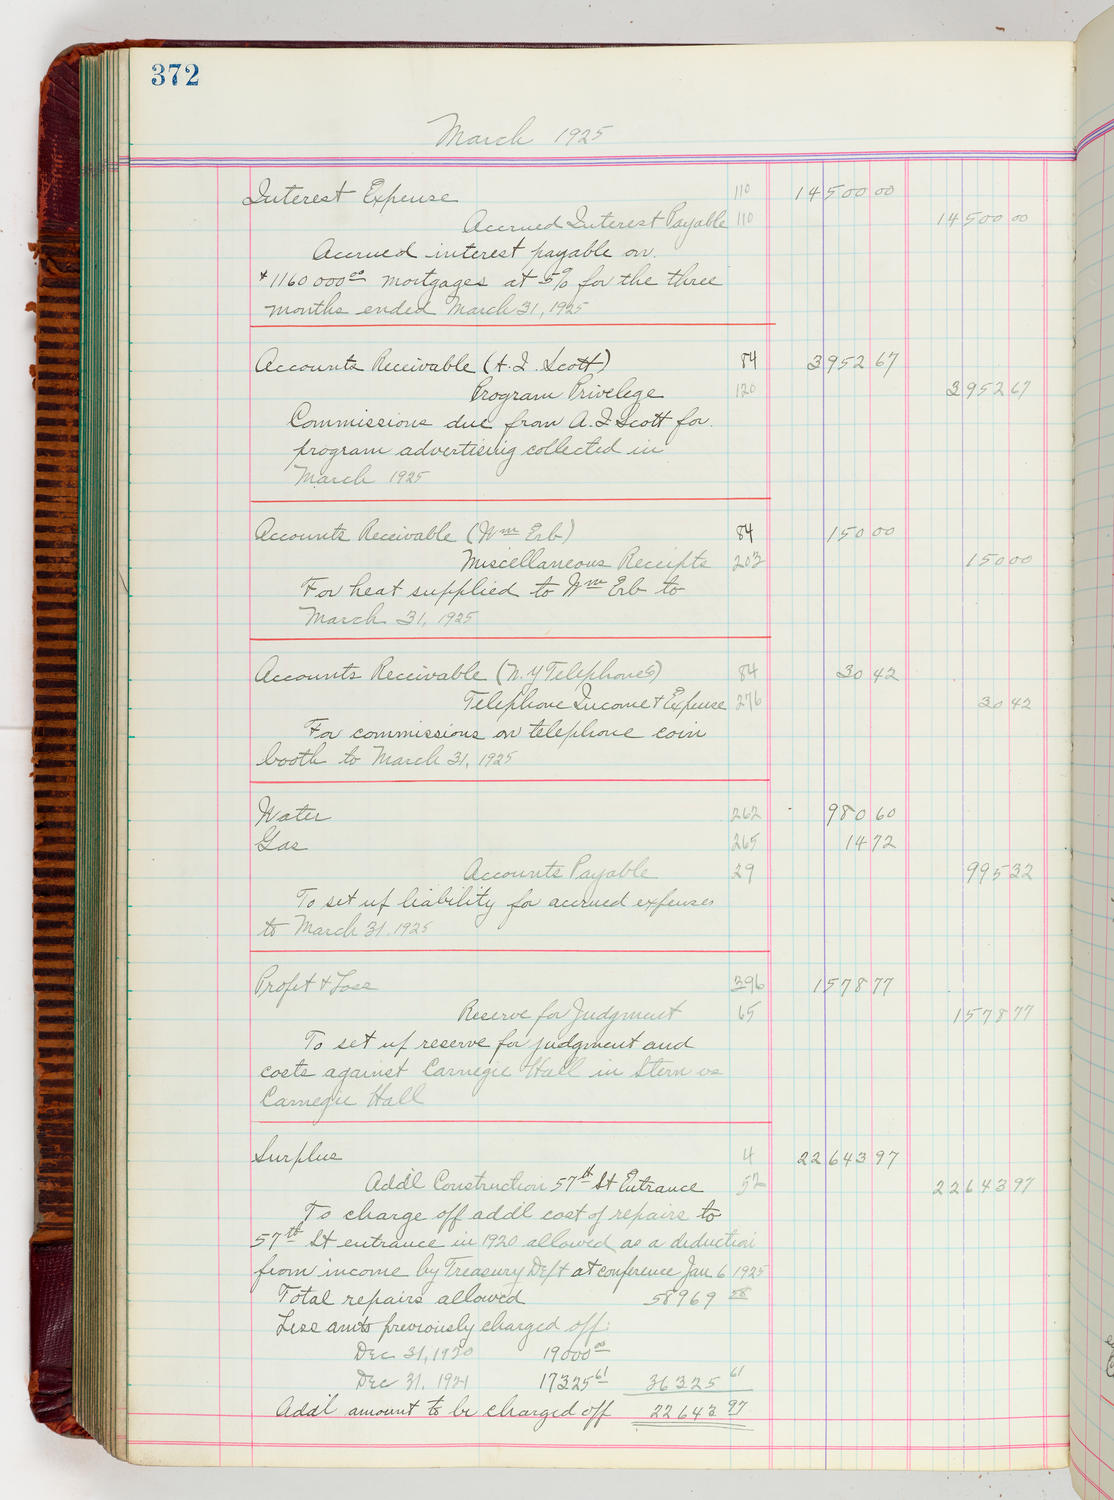 372
March 1925
Interest Expense 110 14500 00
Accrued Interest Payable 110 14500 00
Accrued interest payable on
$1160000.00 mortgages at 5% for the three
months ended March 31, 1925
Accounts Receivable (A.I. Scott) 84 3952 67
Program Privelege 120 3952 67
Commissions due from A.I Scott for
program advertising collected in
March 1925
Accounts Receivable (Wm Erb) 84 150 00
Miscellaneous Receipts 203 150 00
For heat supplied to Wm Erb to
March 31, 1925
Accounts Receivable (N.Y Telephones) 84 30 42
Telephone Income & Expense 276 30 42
For commissions on telephone coin
booth to March 31, 1925
Water 262 980 60
Gas 265 14 72
Accounts Payable 29 995 32
To set up liability for accrued expenses
to March 31. 1925
Profit & Loss 396 1578 77
Reserve for Judgment 65 1578 77
To set up reserve for judgment and
costs against Carnegie Hall in Stern vs
Carnegie Hall
Surplus 4 22643 97
Add'l Construction 57th St Entrance 52 22643 97
To charge off addl cost of repairs to
57th St entrance in 1920 allowed as a deduction
from income by Treasury Dept at conference Jan 6 1925
Total repairs allowed 58969 58
Less amts previously charged off:
Dec 31, 1920 19000 00
Dec 31. 1921 17325 61 36325 61
Addl amount to be charged off 22643 97